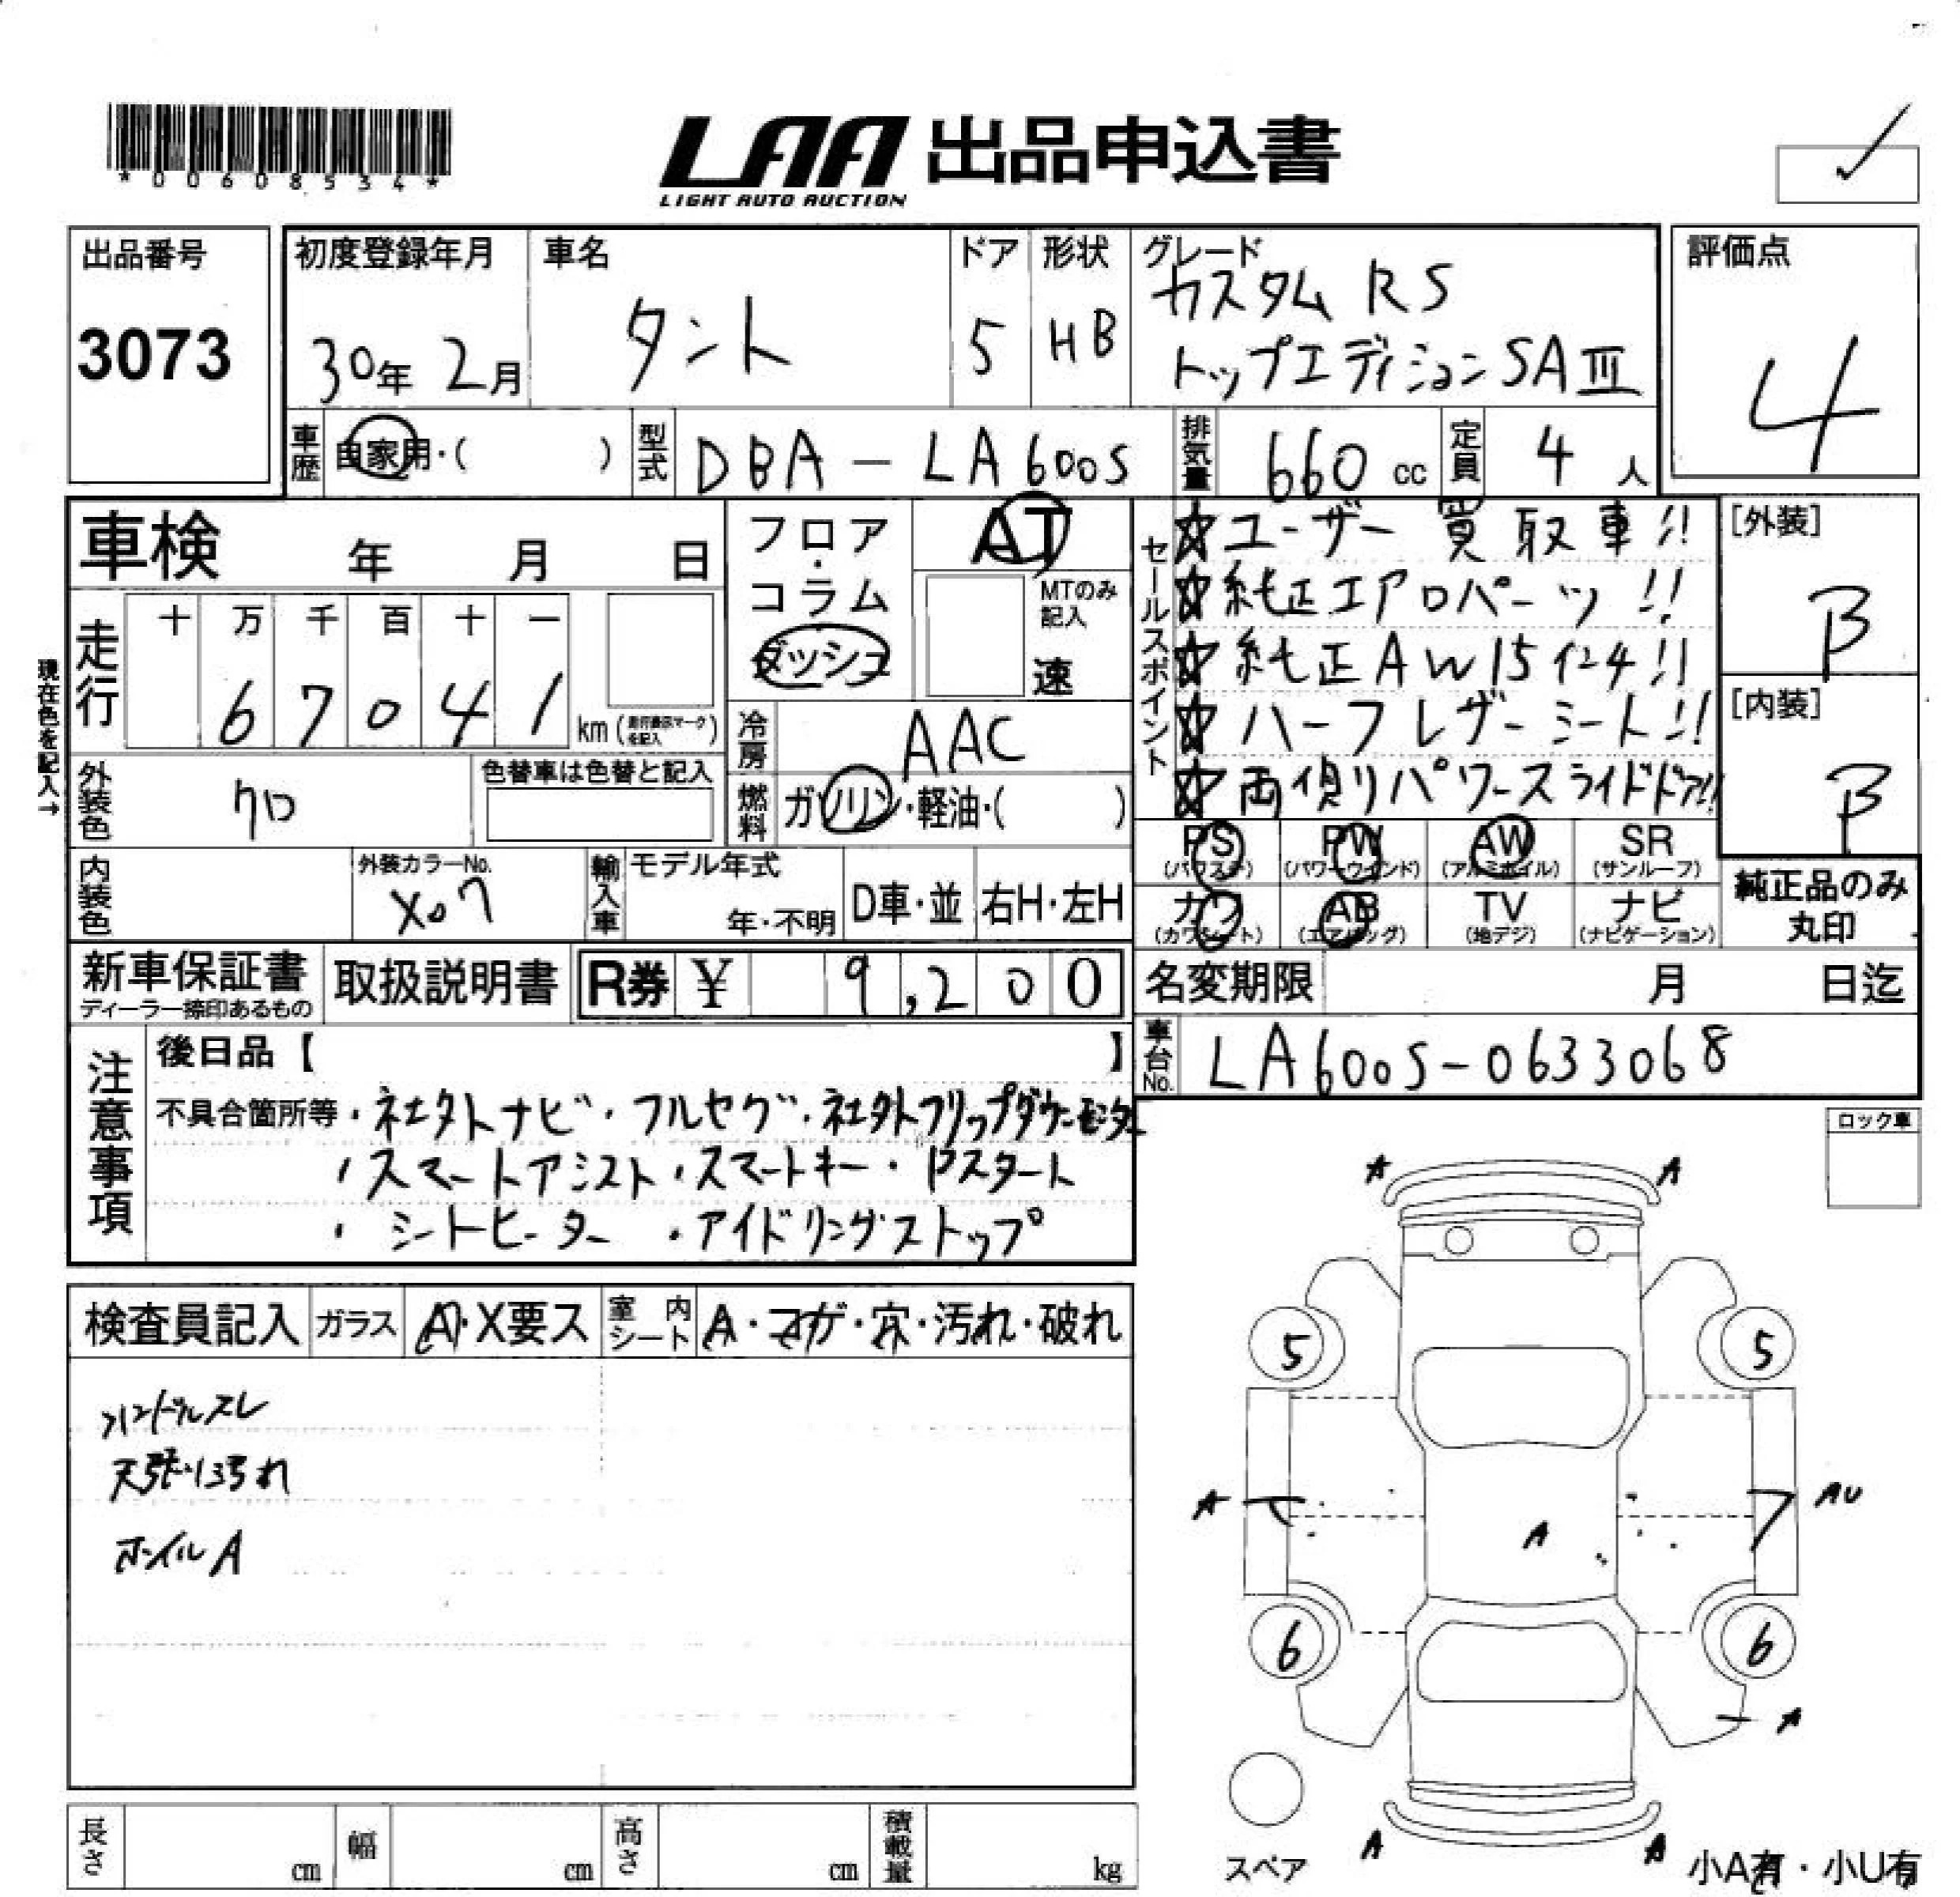 *00608534*
LAA 出品申込書
LIGHT AUTO AUCTION
出品番号
3073
初度登録年月
30年 2月
車名
タント
ドア
5
形状
HB
グレード
カスタム RS
トップエディションSAⅢ
評価点
4
車歴 自家用・( )
型式 DBA-LA600S
排気量 660 cc
定員 4 人
車検 年 月 日
フロア・コラム
ダッシュ
AT
MTのみ記入
速
セールスポイント
☆ユーザー買取車!!
☆純正エアロパーツ!!
☆純正AW15インチ!!
☆ハーフレザーシート!!
☆両側パワースライドドア!!
[外装]
B
[内装]
B
現在色を記入→
走行
十 万 千 百 十 一
6 7 0 4 1 km (走行表示マークを記入)
冷房 AAC
外装色 クロ
色替車は色替と記入
燃料 ガソリン・軽油・( )
PS (パワステ)
PW (パワーウインド)
AW (アルミホイル)
SR (サンルーフ)
カワ (カワシート)
AB (エアバッグ)
TV (地デジ)
ナビ (ナビゲーション)
純正品のみ丸印
内装色
外装カラーNo.
X07
輸入車 モデル年式
年・不明
D車・並
右H・左H
新車保証書
ディーラー捺印あるもの
取扱説明書
R券 ¥ 9,200
名変期限 月 日迄
車台No. LA600S-0633068
注意事項
後日品【 】
不具合箇所等・社外ナビ・フルセグ・社外フリップダウンモニター
・スマートアシスト・スマートキー・Pスタート
・シートヒーター ・アイドリングストップ
ロック車
検査員記入 ガラス A・X要ス 室内シート A・コゲ・穴・汚れ・破れ
ハンドルスレ
天張り汚れ
ホイルA
A A
5 5
A A AU
6 6
A
スペア
A A
小A有・小U有
長さ cm 幅 cm 高さ cm 積載量 kg